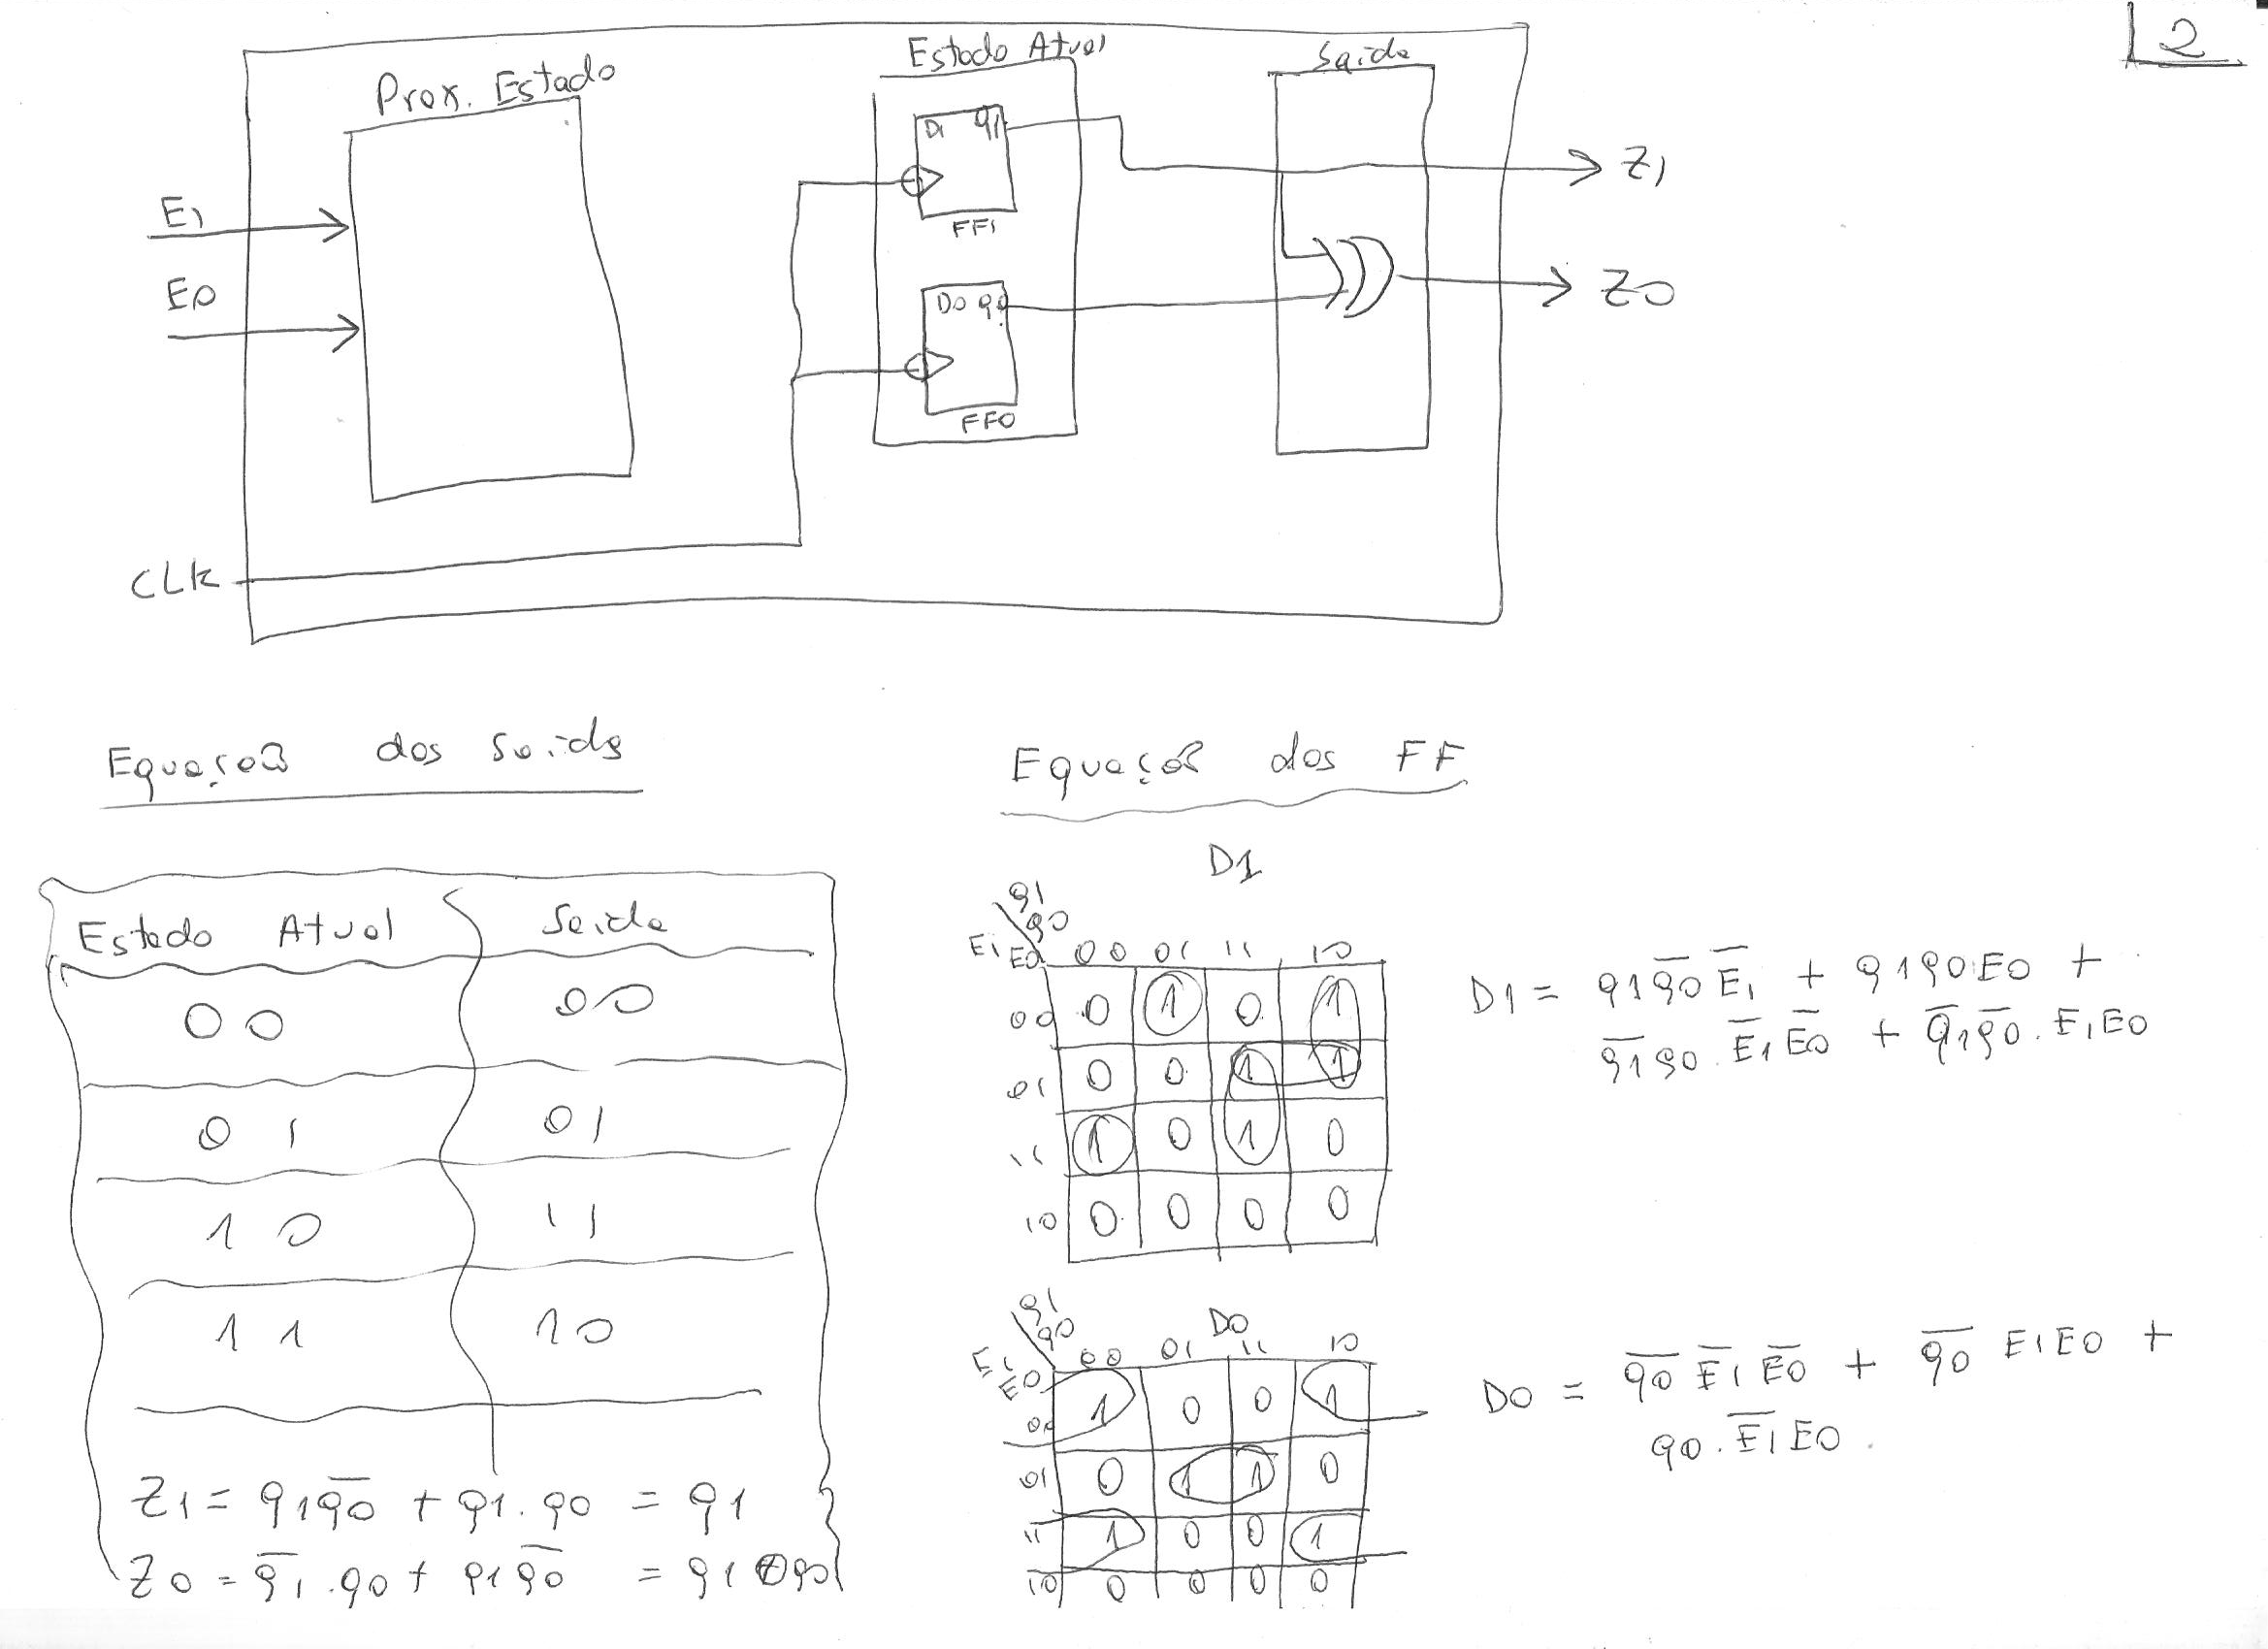 2
Prox. Estado
Estado Atual
Saida
D1 q1
FF1
D0 q0
FF0
E1
E0
CLK
Z1
Z0
Equação das Saida
Estado Atual Saida
00 00
01 01
10 11
11 10
Z1 = q1q̅0̅ + q1.q0 = q1
Z0 = q̅1̅.q0 + q1q̅0̅ = q1⊕q0
Equação dos FF
D1
q1
q0
E1 E0 00 01 11 10
00 0 1 0 1
01 0 0 1 1
11 1 0 1 0
10 0 0 0 0
D1 = q1q̅0̅E̅1̅ + q1q0E0 +
q̅1̅q0.E̅1̅E̅0̅ + q̅1̅q̅0̅.E1E0
D0
q1
q0
E1
E0 00 01 11 10
00 1 0 0 1
01 0 1 1 0
11 1 0 0 1
10 0 0 0 0
D0 = q̅0̅ E̅1̅ E̅0̅ + q̅0̅ E1E0 +
q0.E̅1̅E0.